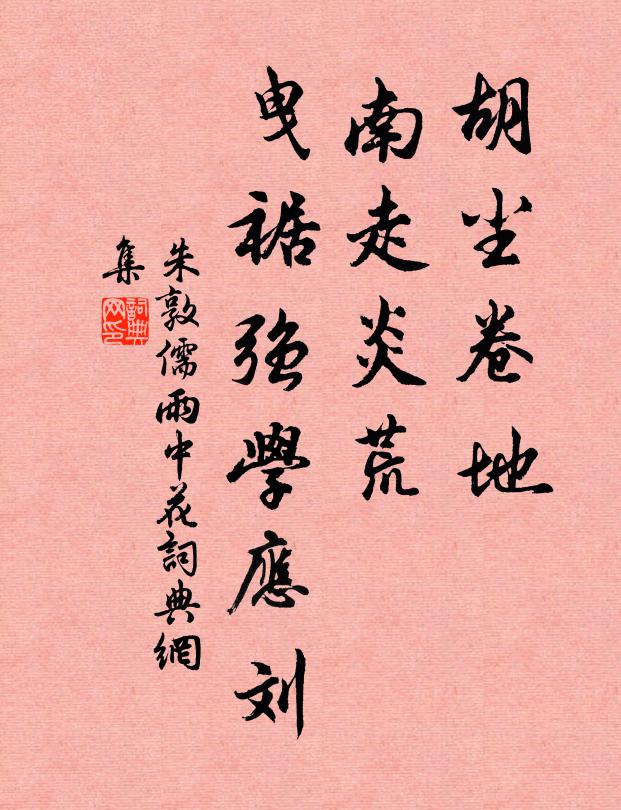 胡尘卷地
南走炎荒
曳裾強學應刘
朱敦儒雨中花詞典網
集
詞典网印